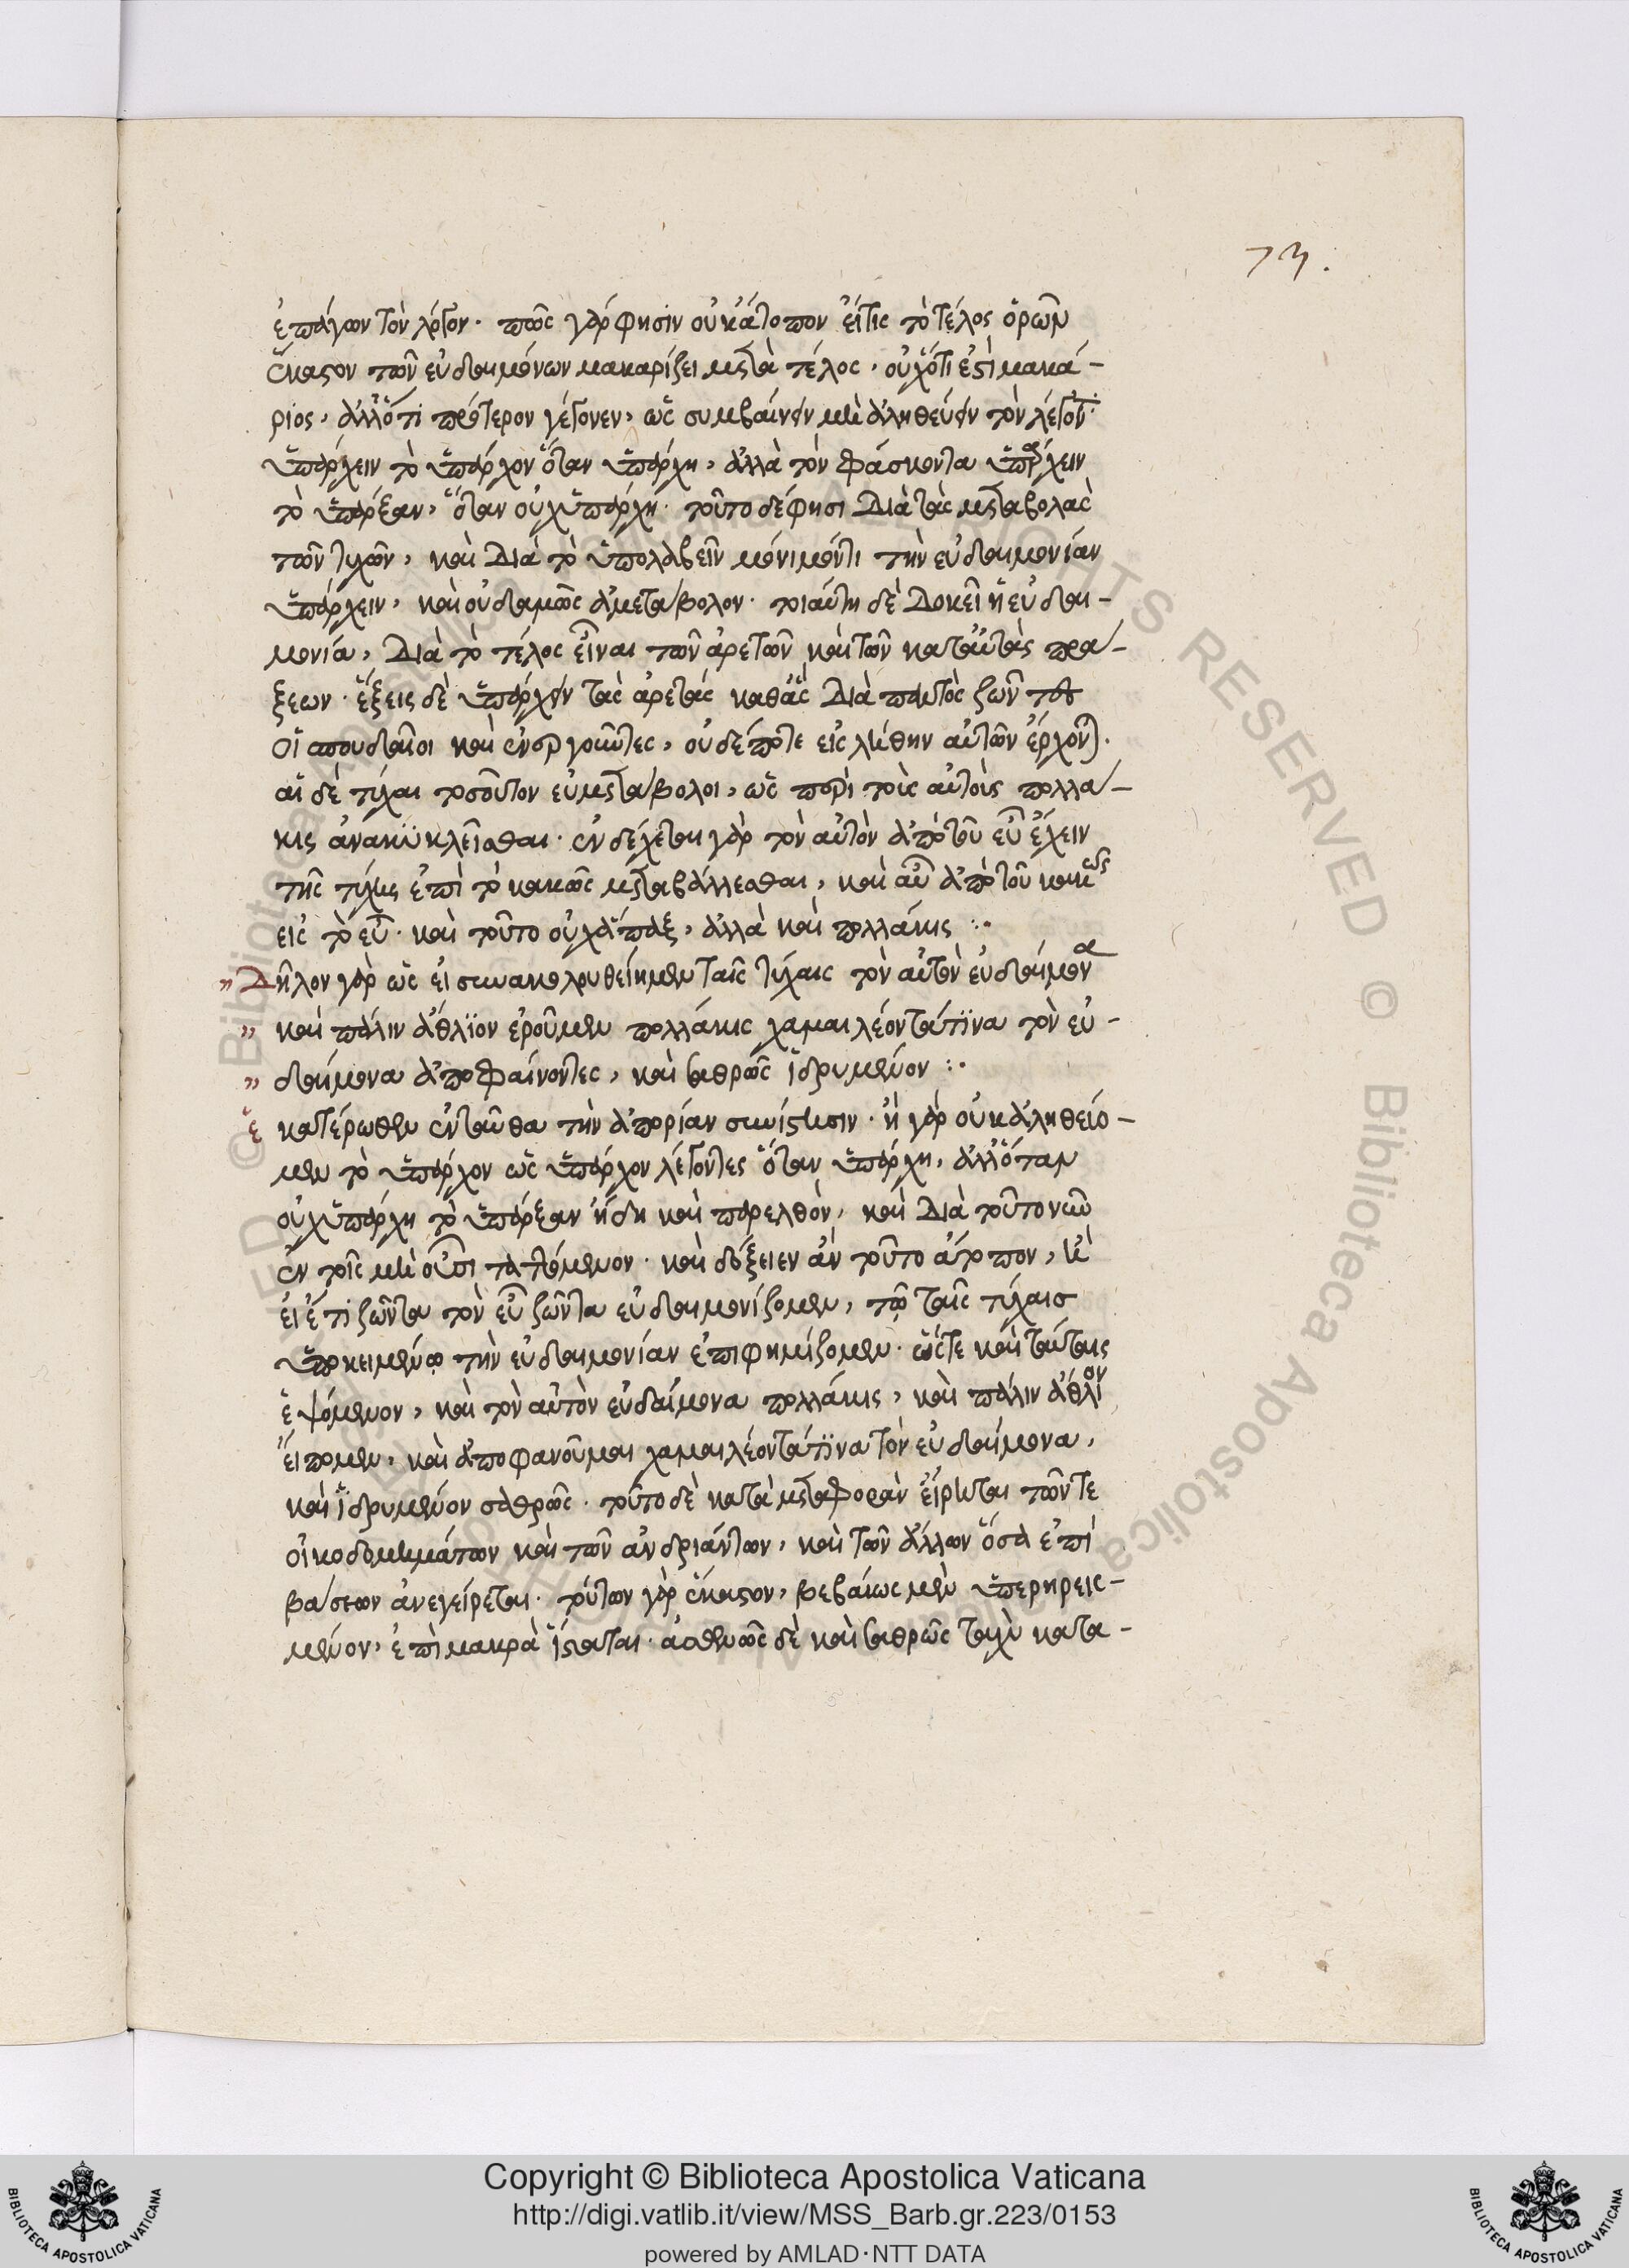 73.
ἐπάγων τὸν λόγον. πῶς γάρ φησιν οὐκ ἄτοπον εἴ τις τὸ τέλος ὁρῶν
ἕκαστον τῶν εὐδαιμόνων μακαρίζει μετὰ τέλος, οὐχ ὅτι ἐστὶ μακά-
ριος, ἀλλ' ὅτι πρότερον γέγονεν, ὡς συμβαίνειν μὴ ἀληθεύειν τὸν λέγοντ.
ὑπάρχειν τὸ ὑπάρχον ὅταν ὑπάρχη, ἀλλὰ τὸν φάσκοντα ὑπάρχειν
τὸ ὑπάρξαν, ὅταν οὐχ ὑπάρχη. τοῦτο δέ φησι διὰ τὰς μεταβολὰς
τῶν τυχῶν, καὶ διὰ τὸ ὑπολαβεῖν μόνιμόν τι τὴν εὐδαιμονίαν
ὑπάρχειν, καὶ οὐδαμῶς ἀμετάβολον. τοιαύτη δὲ δοκεῖ ἡ εὐδαι-
μονία, διὰ τὸ τέλος εἶναι τῶν ἀρετῶν καὶ τῶν κατ' αὐτὰς πρά-
ξεων. ἕξεις δὲ ὑπάρχειν τὰς ἀρετὰς καθ' ἃς διὰ παντὸς ζῶν του
οἱ σπουδαῖοι καὶ ἐνεργοῦντες, οὐδέποτε εἰς λήθην αὐτῶν ἔρχονται.
αἱ δὲ τύχαι τοσοῦτον εὐμετάβολοι, ὡς περὶ τοὺς αὐτοὺς πολλά-
κις ἀνακυκλεῖσθαι. ἐνδέχεται γὰρ τὸν αὐτὸν ἀπὸ τοῦ εὖ ἔχειν
τῆς τύχης ἐπὶ τὸ κακῶς μεταβάλλεσθαι, καὶ αὖ ἀπὸ τοῦ κακῶς
εἰς τὸ εὖ. καὶ τοῦτο οὐχ ἅπαξ, ἀλλὰ καὶ πολλάκις :·
" Δῆλον γὰρ ὡς εἰ συνακολουθείημεν ταῖς τύχαις τὸν αὐτὸν εὐδαίμονα
" καὶ πάλιν ἄθλιον ἐροῦμεν πολλάκις χαμαιλέοντά τινα τὸν εὐ-
" δαίμονα ἀποφαίνοντες, καὶ σαθρῶς ἱδρυμένον :·
ἑκατέρωθεν ἐνταῦθα τὴν ἀπορίαν συνίστησιν. ἢ γὰρ οὐκ ἀληθεύο-
μεν τὸ ὑπάρχον ὡς ὑπάρχον λέγοντες ὅταν ὑπάρχη, ἀλλ' ὅταν
οὐχ ὑπάρχη τὸ ὑπάρξαν ἤδη καὶ παρελθὸν, καὶ διὰ τοῦτο νῦν
ἐν τοῖς μὴ οὖσι ταττόμενον. καὶ δόξειεν ἂν τοῦτο ἄτοπον, ἢ
εἰ ἔτι ζῶντα τὸν εὖ ζῶντα εὐδαιμονίζομεν, τῷ ταῖς τύχαις
ὑποκειμένῳ τὴν εὐδαιμονίαν ἐπιφημίζομεν. ὥστε καὶ ταύταις
ἑψόμενον, καὶ τὸν αὐτὸν εὐδαίμονα πολλάκις, καὶ πάλιν ἄθλιον
εἴπομεν, καὶ ἀποφανοῦμαι χαμαιλέοντά τινα τὸν εὐδαίμονα,
καὶ ἱδρυμένον σαθρῶς. τοῦτο δὲ κατὰ μεταφορὰν εἴρηται τῶν τε
οἰκοδομημάτων καὶ τῶν ἀνδριάντων, καὶ τῶν ἄλλων ὅσα ἐπὶ
βάσεων ἀνεγείρεται. τούτων γὰρ ἕκαστον, βεβαίως μὲν ὑπερηρεις-
μένον, ἐπὶ μακρὰ ἵσταται. ἀσθενῶς δὲ καὶ σαθρῶς ταχὺ κατα-
Copyright © Biblioteca Apostolica Vaticana
http://digi.vatlib.it/view/MSS_Barb.gr.223/0153
powered by AMLAD·NTT DATA